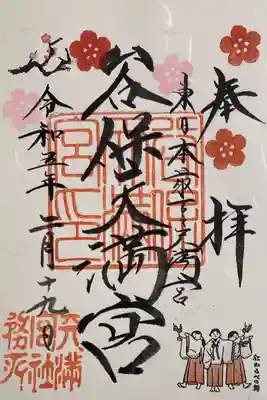 奉拝
東日本最古天満宮
谷保天満宮
令和五年二月十九日
天満宮社務所